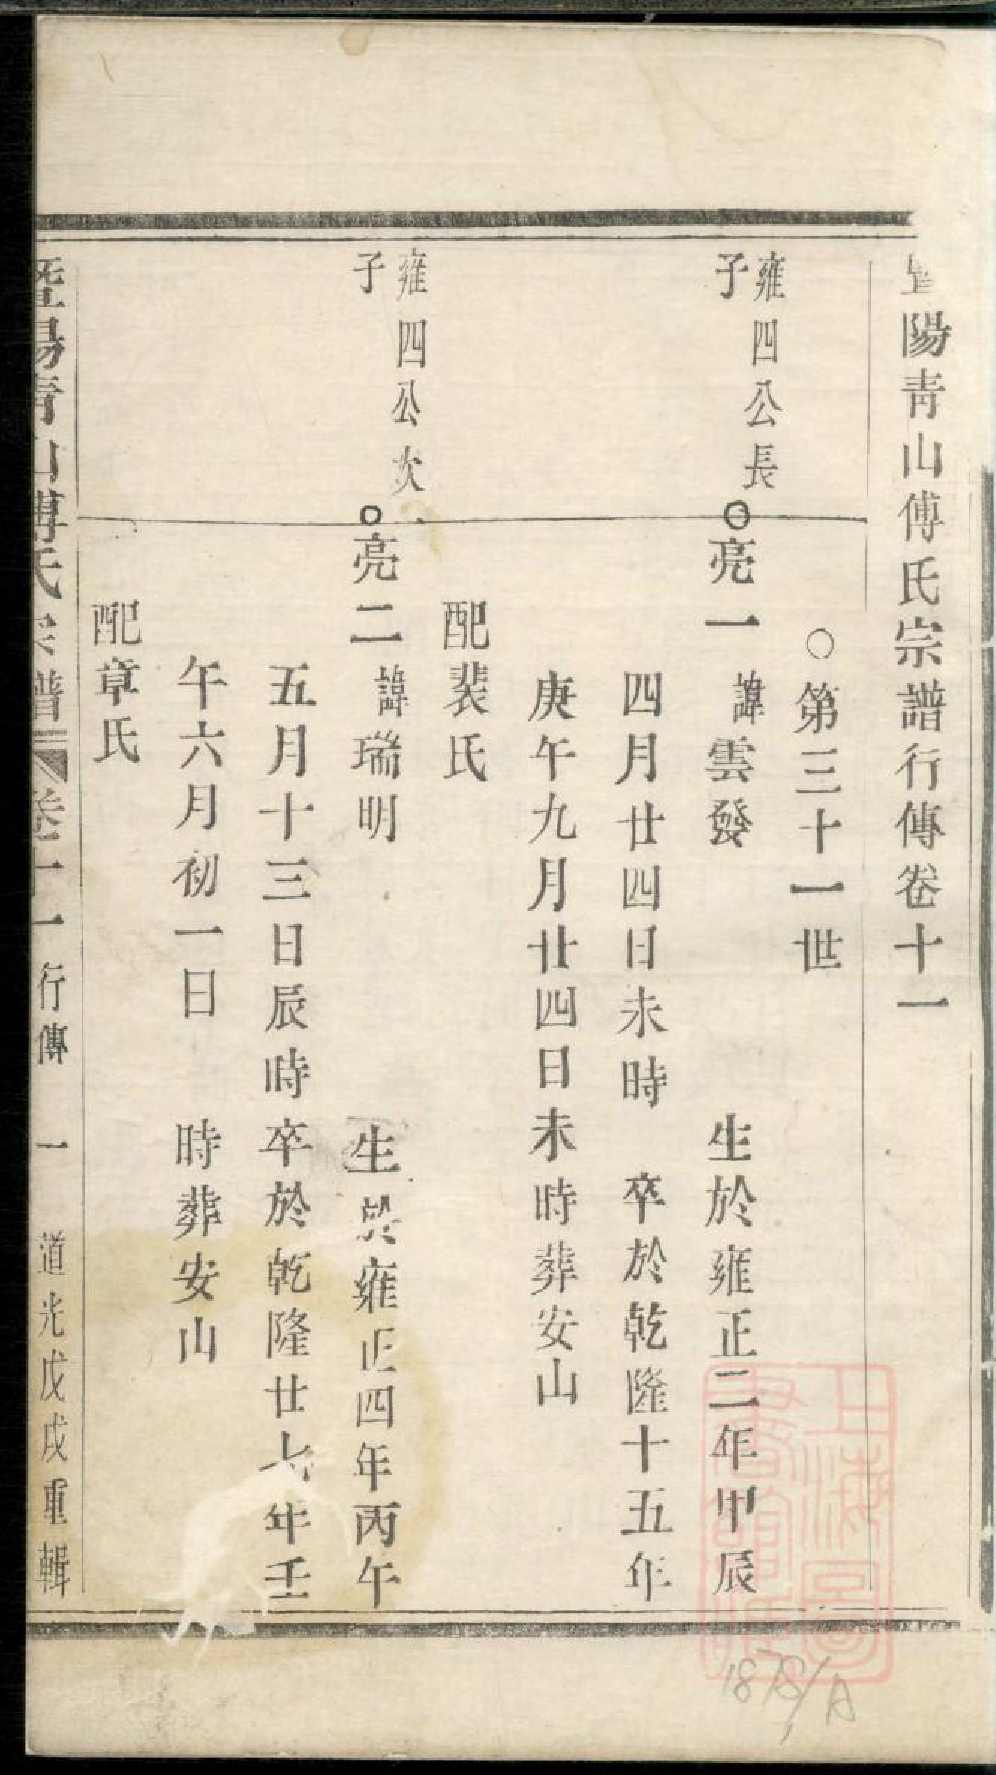 暨陽靑山傅氏宗譜行傳卷十一
○第三十一世
雍四公長
子
○亮一 諱雲發 生於雍正二年甲辰
四月廿四日未時 卒於乾隆十五年
庚午九月廿四日未時葬安山
配裴氏
雍四公次
子
○亮二 諱瑞明 生於雍正四年丙午
五月十三日辰時卒於乾隆廿七年壬
午六月初一日 時葬安山
配章氏
暨陽靑山傅氏宗譜 卷十一 行傳 一 道光戊戌重輯
上海圖
書館藏
1878/A